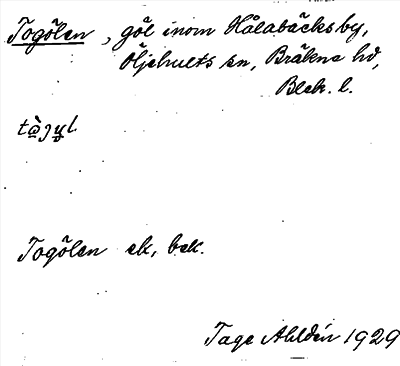 Togölen, göl inom Hålabäcks by,
Öljehults sn, Bräkne hd,
Blek. l.
Togölen ek, bek.
Tage Ahldén 1929